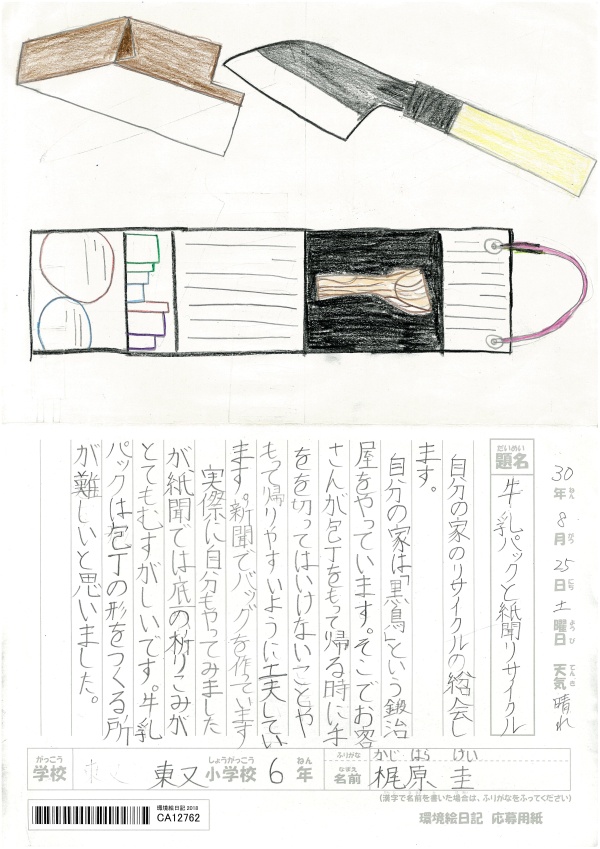 30年ねん 8月がつ 25日にち 土曜日ようび 天気てんき 晴れ
だいめい
題名 牛乳パックと紙聞リサイクル
自分の家のリサイクルの紹会し
ます。
自分の家は「黒鳥」という鍛冶
屋をやっています。そこでお客
さんが包丁をもって帰る時に手
をを切ってはいけないことや
もって帰りやすいように工夫してい
ます。新聞でバッグを作ています
実際に自分もやってみました
が紙聞では底の折りこみが
とてもむずがしいです。牛乳
パックは包丁の形をつくる所
が難しいと思いました。
がっこう
学校 東又 しょうがっこう 小学校 6 ねん 年
ふりがな かじ はら けい
なまえ
名前 梶原 圭
(漢字で名前を書いた場合は、ふりがなをふってください)
環境絵日記 2018
CA12762
環境絵日記 応募用紙